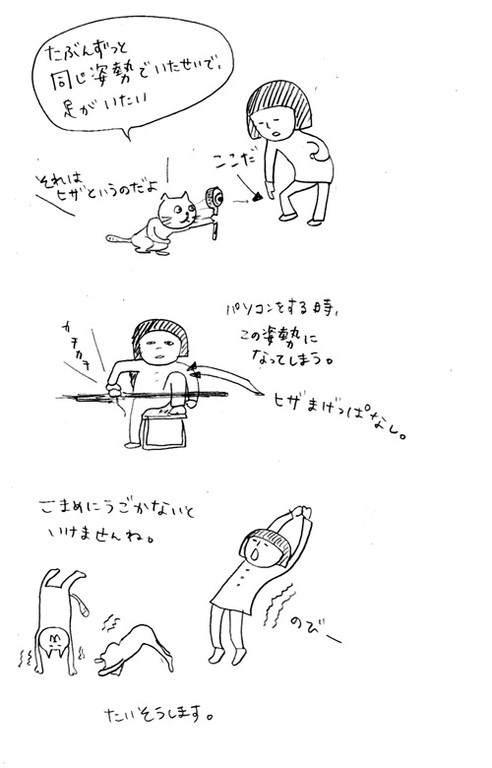 たぶんずっと
同じ姿勢でいたせいで、
足がいたい
ここだ
それは
ヒザというのだよ
パソコンをする時、
この姿勢に
なってしまう。
カチカチ
ヒザまげっぱなし。
こまめにうごかないと
いけませんね。
のびー
たいそうします。